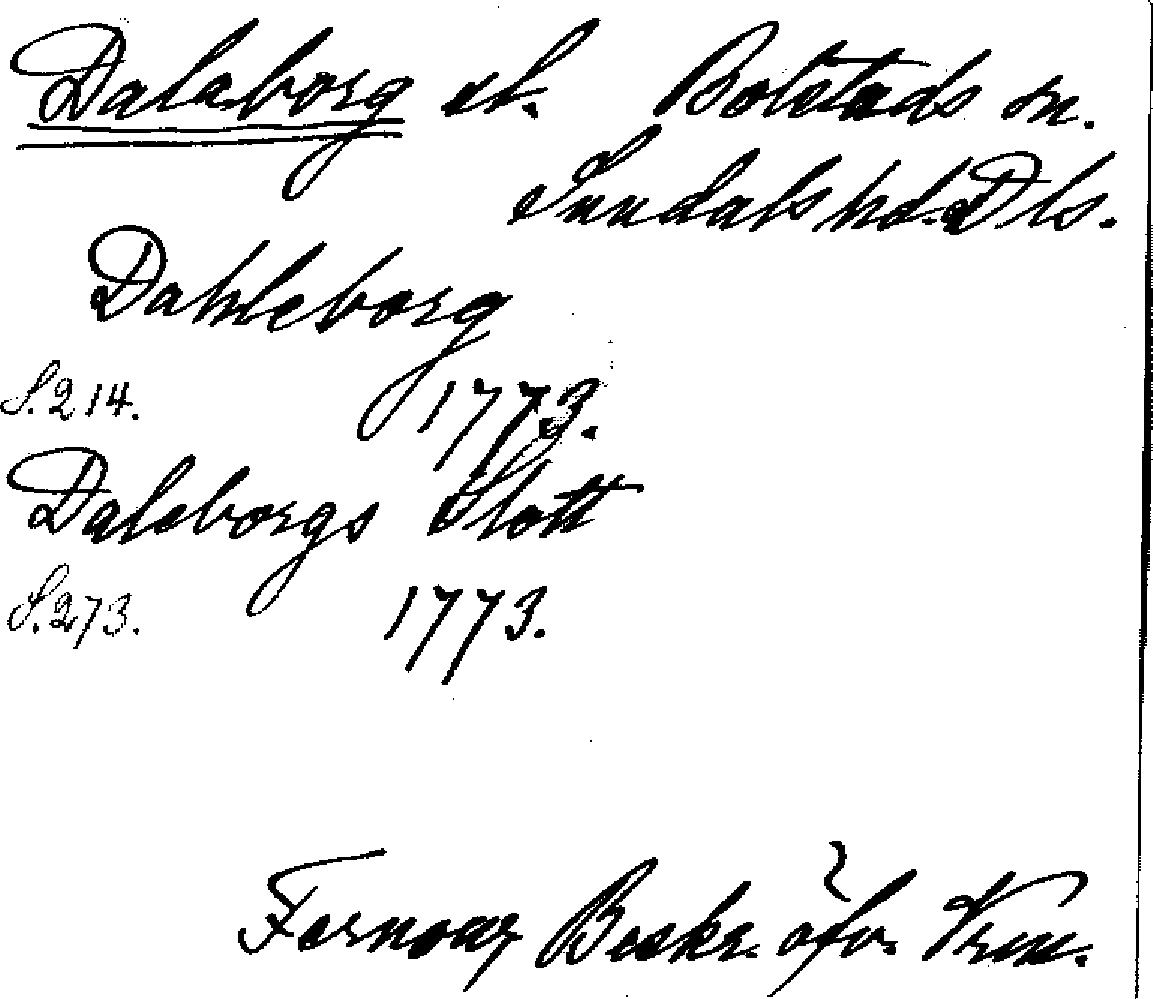 Dalaborg sl. Bolstads sn.
Sundals hd. Dls.
Dahleborg
S. 214. 1773.
Daleborgs Slott
S. 273. 1773.
Fernow, Beskr. öfv. Verm.